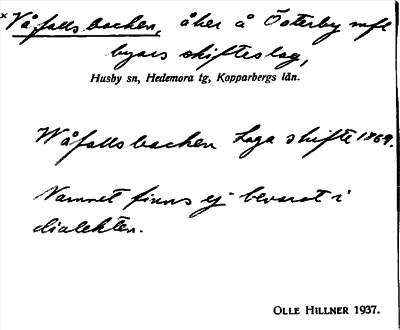 ×Våfallsbacken, åker å Österby mfl
byars skifteslag,
Husby sn, Hedemora tg, Kopparbergs län.
Wåfallsbacken Laga skifte 1869.
Namnet finns ej bevarat i
dialekten.
OLLE HILLNER 1937.